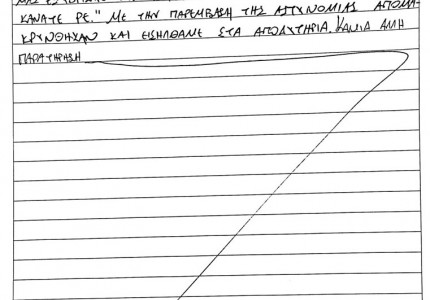 ΚΑΝΑΤΕ ΡΕ." ΜΕ ΤΗΝ ΠΑΡΕΜΒΑΣΗ ΤΗΣ ΑΣΤΥΝΟΜΙΑΣ ΑΠΟΜΑ-
ΚΡΥΝΘΗΚΑΝ ΚΑΙ ΕΙΣΗΛΘΑΜΕ ΣΤΑ ΑΠΟΔΥΤΗΡΙΑ. ΚΑΜΙΑ ΑΛΛΗ
ΠΑΡΑΤΗΡΗΣΗ